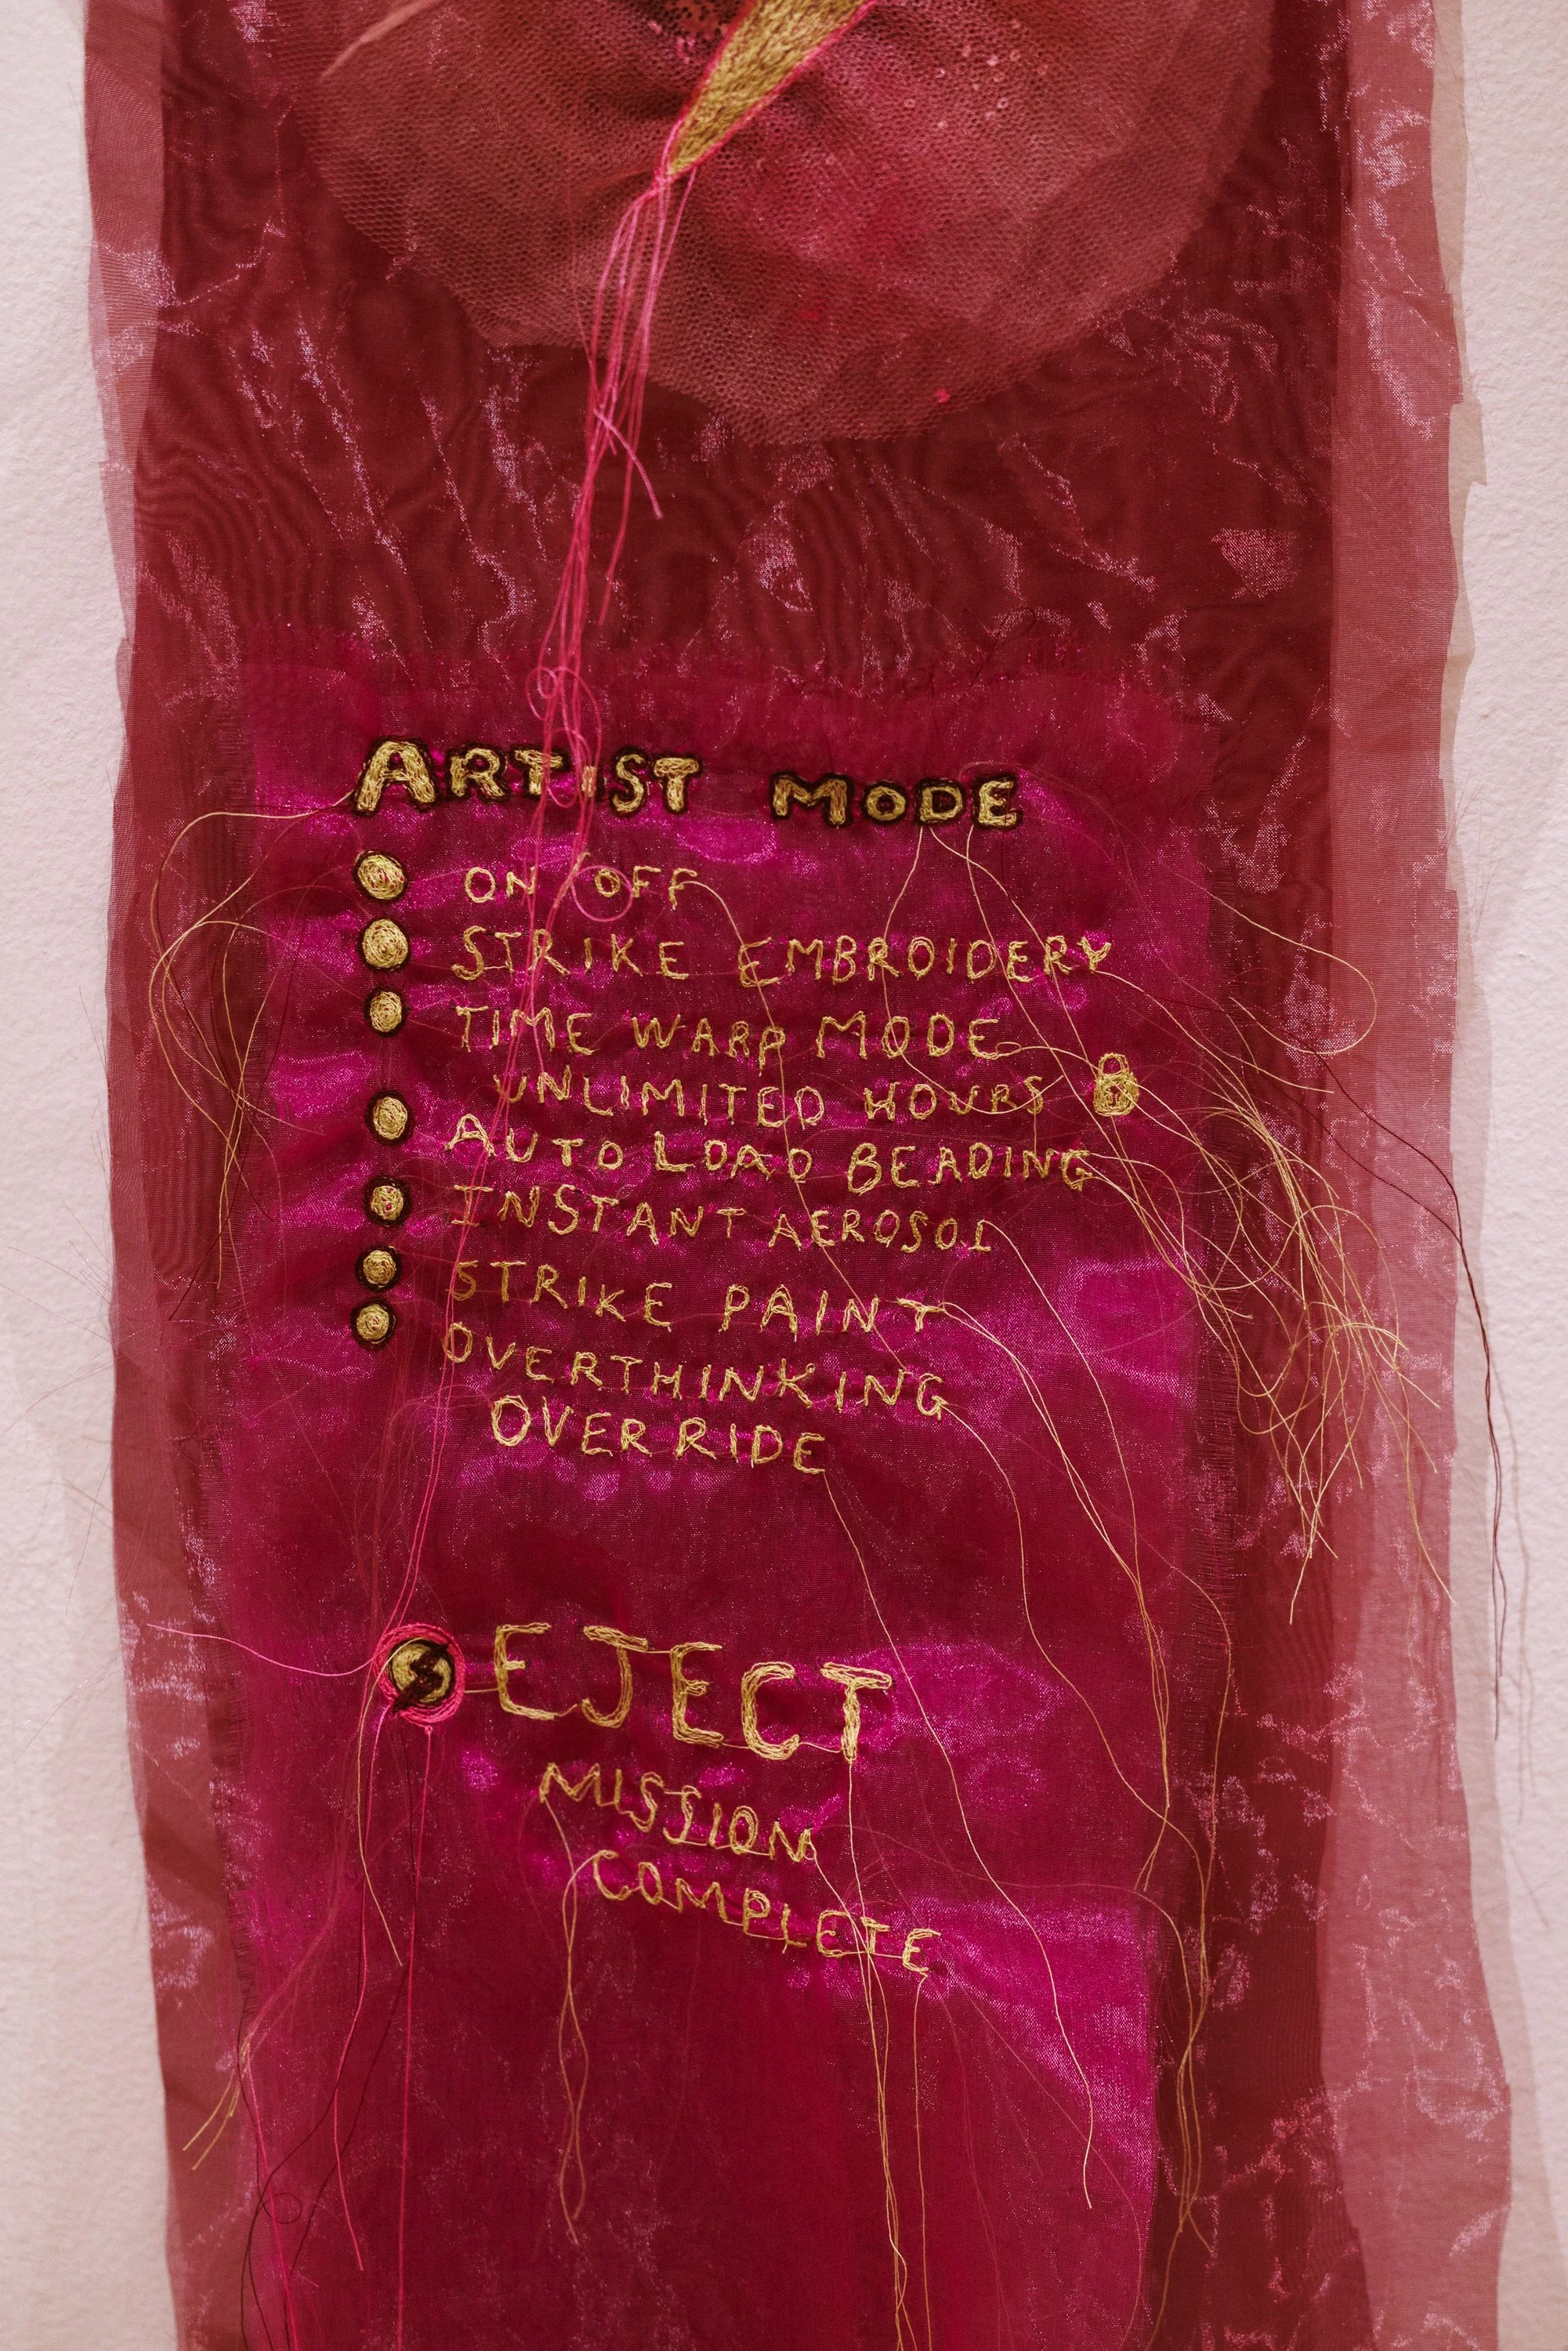 ARTIST MODE
ON OFF
STRIKE EMBROIDERY
TIME WARP MODE
UNLIMITED HOURS
AUTO LOAD BEADING
INSTANT AEROSOL
STRIKE PAINT
OVERTHINKING
OVERRIDE
EJECT
MISSION
COMPLETE